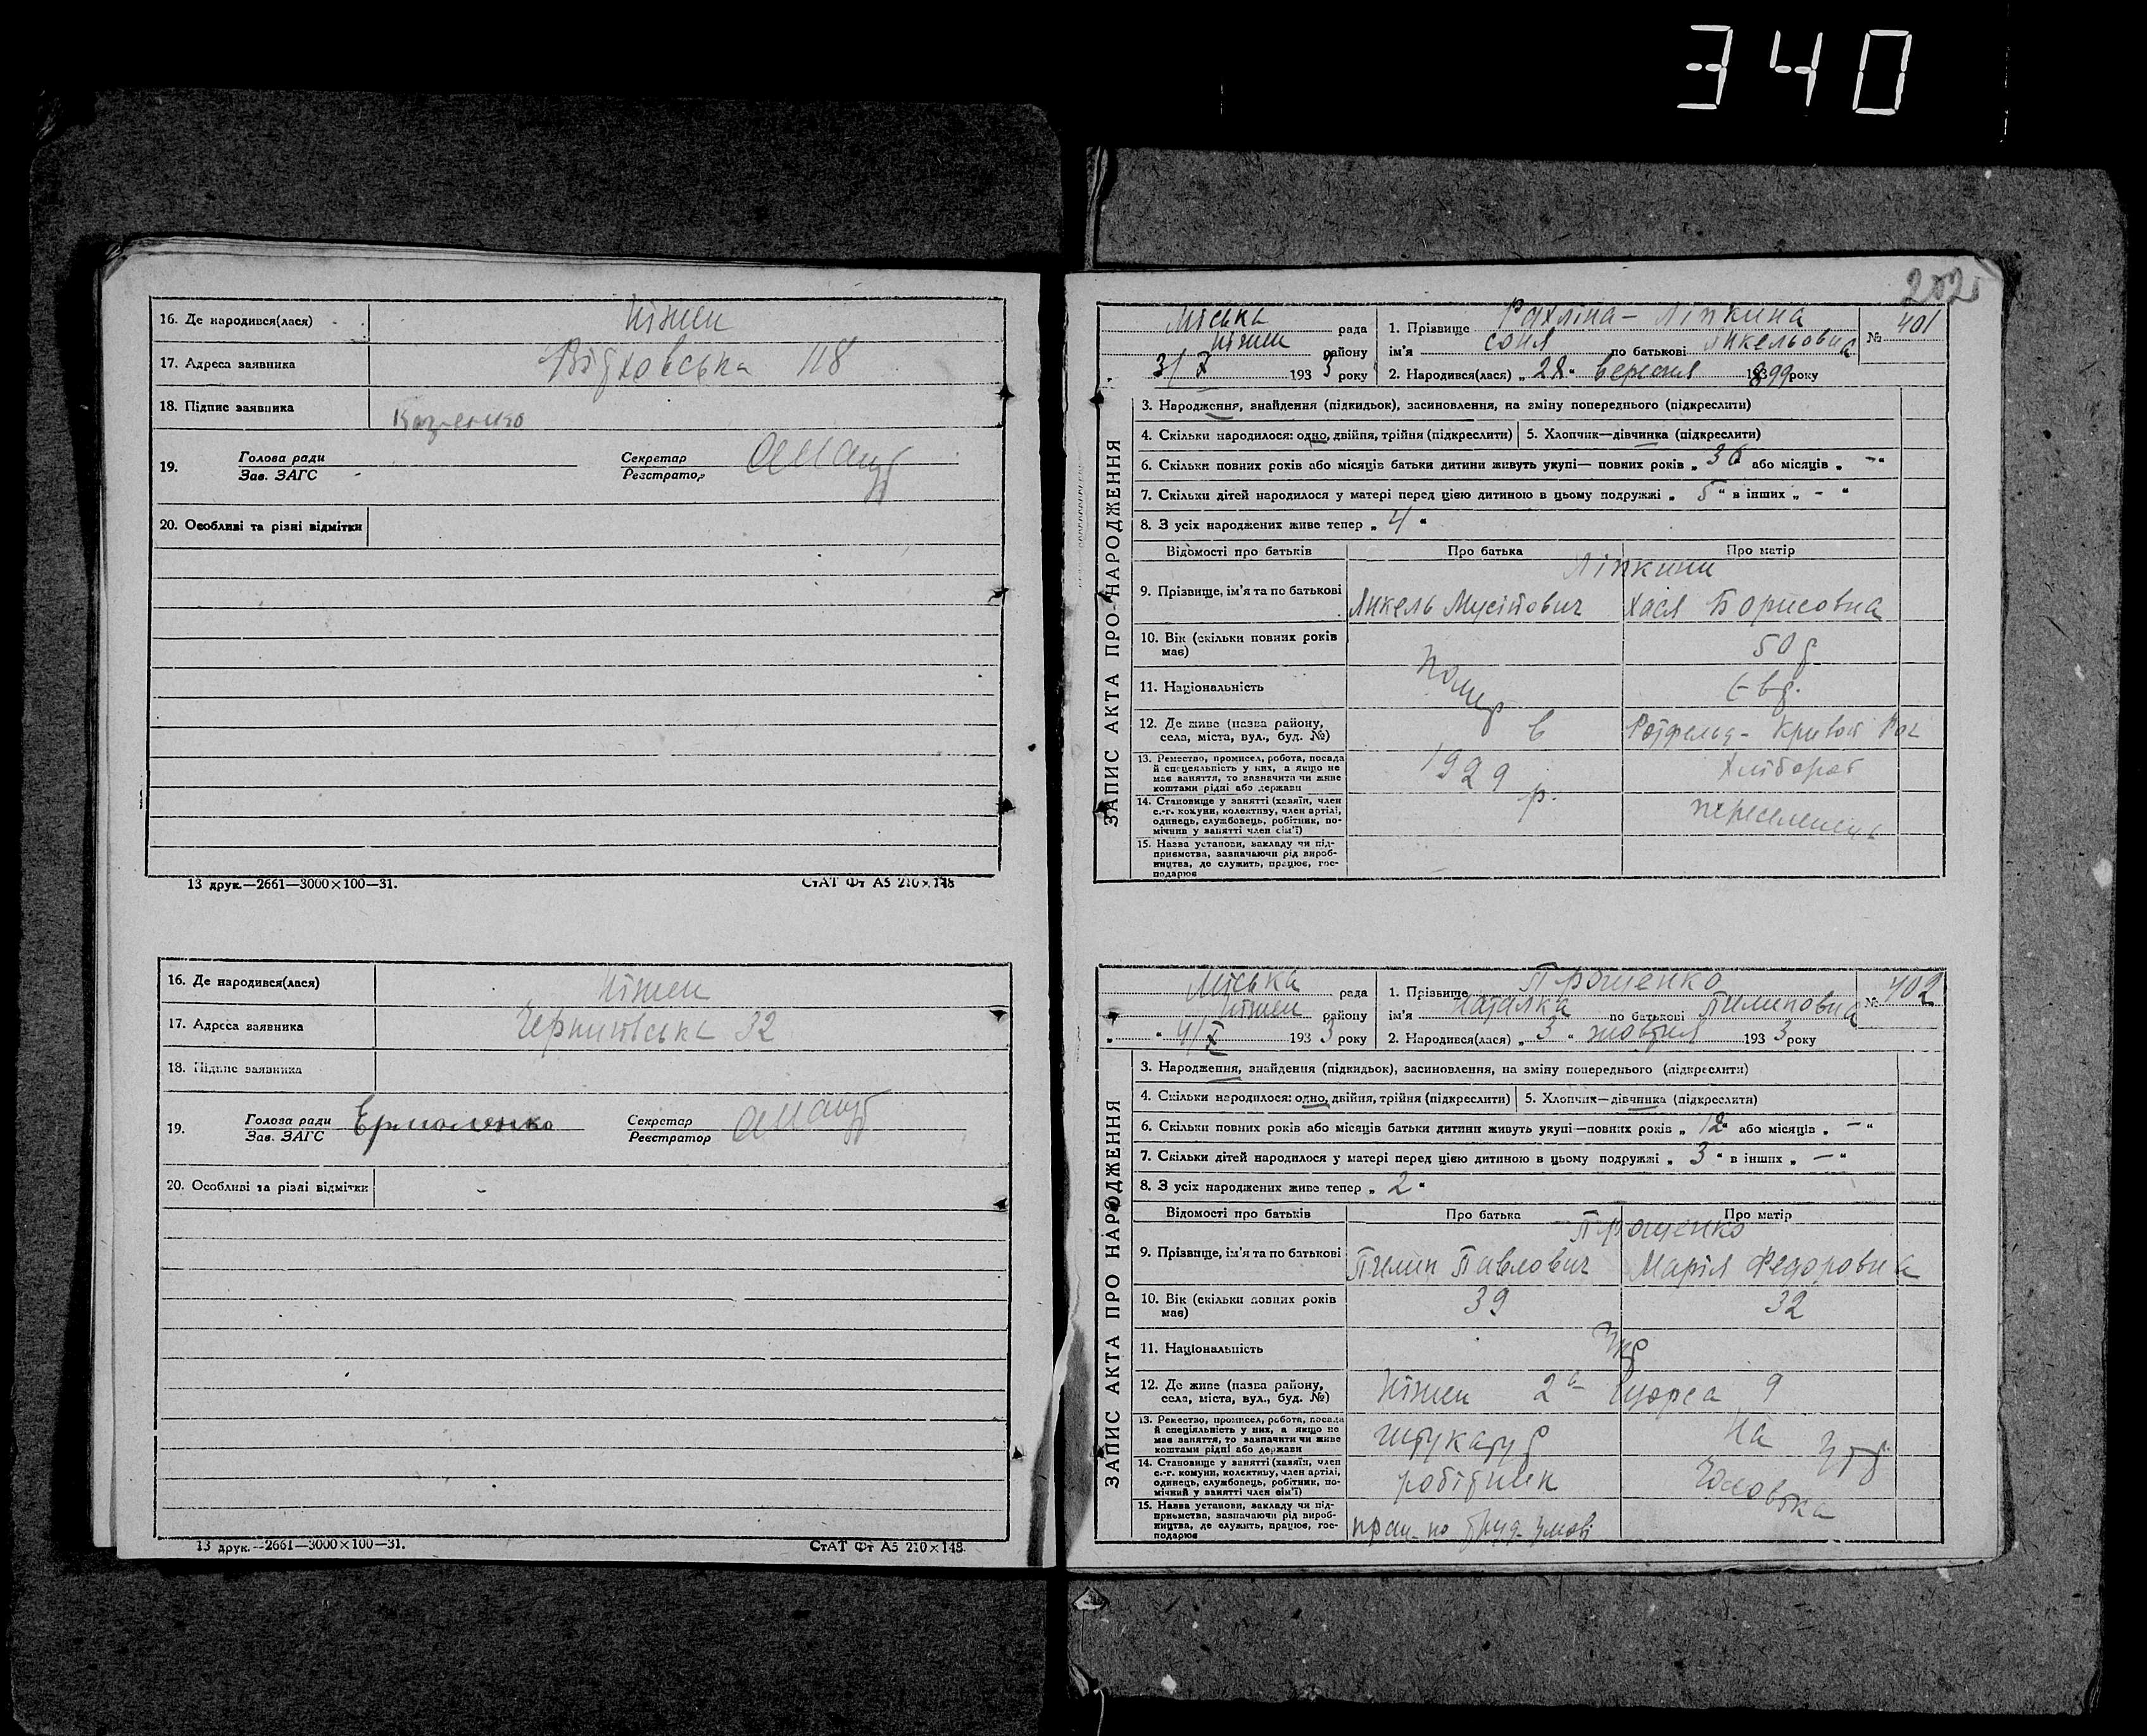 340
16. Де народився(лася) Ніжен
17. Адреса заявника 118
18. Підпис заявника
19. Голова ради Секретар
Зав. ЗАГС Реєстратор
20. Особливі та різні відмітки
13 друк.—2661—3000×100—31. СтАТ Фт А5 210×148
16. Де народився(лася) Ніжен
17. Адреса заявника 32
18. Підпис заявника
19. Голова ради Ермоленко Секретар
Зав. ЗАГС Реєстратор
20. Особливі та різні відмітки -
13 друк.—2661—3000×100—31. СтАТ Фт А5 210×148.
202
ЗАПИС АКТА ПРО НАРОДЖЕННЯ
Міська рада 1. Прізвище Рахліна - Ліпкина № 401
Ніжен району ім'я соня по батькові Янкельовна
3/X 1933 року 2. Народився(лася) „28" вересня 1899 року
3. Народження, знайдення (підкидьок), засиновлення, на зміну попереднього (підкреслити)
4. Скільки народилося: одно, двійня, трійня (підкреслити) 5. Хлопчик—дівчинка (підкреслити)
6. Скільки повних років або місяців батьки дитини живуть укупі— повних років „ 36 або місяців „ —"
7. Скільки дітей народилося у матері перед цією дитиною в цьому подружжі „ 5 " в інших „ - "
8. З усіх народжених живе тепер „ 4 "
Відомості про батьків Про батька Про матір
Ліпкини
9. Прізвище, ім'я та по батькові Янкель Хася Борисовна
10. Вік (скільки повних років має) 50 р
11. Національність Помер Євр.
12. Де живе (назва району, села, міста, вул., буд. №) в Кривой Рог
13. Ремество, промисел, робота, посада й спеціяльність у них, а якщо не має заняття, то зазначити чи живе коштами рідні або держави 1929 Хлібороб
14. Становище у занятті (хазяїн, член с.-г. комуни, колективу, член артілі, одинець, службовець, робітник, помічник у занятті член сім'ї) р. переселенець
15. Назва установи, закладу чи підприємства, зазначаючи рід виробництва, де служить, працює, господарює
ЗАПИС АКТА ПРО НАРОДЖЕННЯ
Міська рада 1. Прізвище Прощенко № 402
Ніжен району ім'я Наталка по батькові Пилиповна
„ " 4/X 1933 року 2. Народився(лася) „ 3 " жовтня 1933 року
3. Народження, знайдення (підкидьок), засиновлення, на зміну попереднього (підкреслити)
4. Скільки народилося: одно, двійня, трійня (підкреслити) 5. Хлопчик—дівчинка (підкреслити)
6. Скільки повних років або місяців батьки дитини живуть укупі—повних років „ 12" або місяців „ — "
7. Скільки дітей народилося у матері перед цією дитиною в цьому подружжі „ 3 " в інших „ —"
8. З усіх народжених живе тепер „ 2 "
Відомості про батьків Про батька Про матір
Прощенко
9. Прізвище, ім'я та по батькові Пилип Павлович Марія Федоровна
10. Вік (скільки повних років має) 39 32
11. Національність Укр
12. Де живе (назва району, села, міста, вул., буд. №) Ніжен 2а Щорса 9
13. Ремество, промисел, робота, посада й спеціяльність у них, а якщо не має заняття, то зазначити чи живе коштами рідні або держави штукатур На утр
14. Становище у занятті (хазяїн, член с.-г. комуни, колективу, член артілі, одинець, службовець, робітник, помічний у занятті член сім'ї) робітник
15. Назва установи, закладу чи підприємства, зазначаючи рід виробництва, де служить, працює, господарює прац. по труд. умові